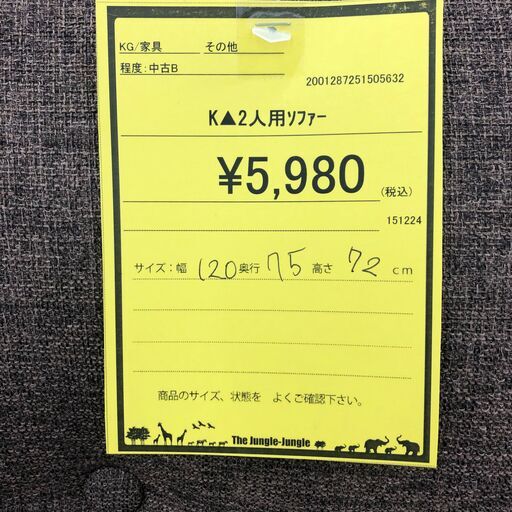 KG/家具 その他
程度:中古B
2001287251505632
K▲2人用ソファー
¥5,980 (税込)
151224
サイズ:幅 120 奥行 75 高さ 72 cm
商品のサイズ、状態を よくご確認下さい。
The Jungle-Jungle